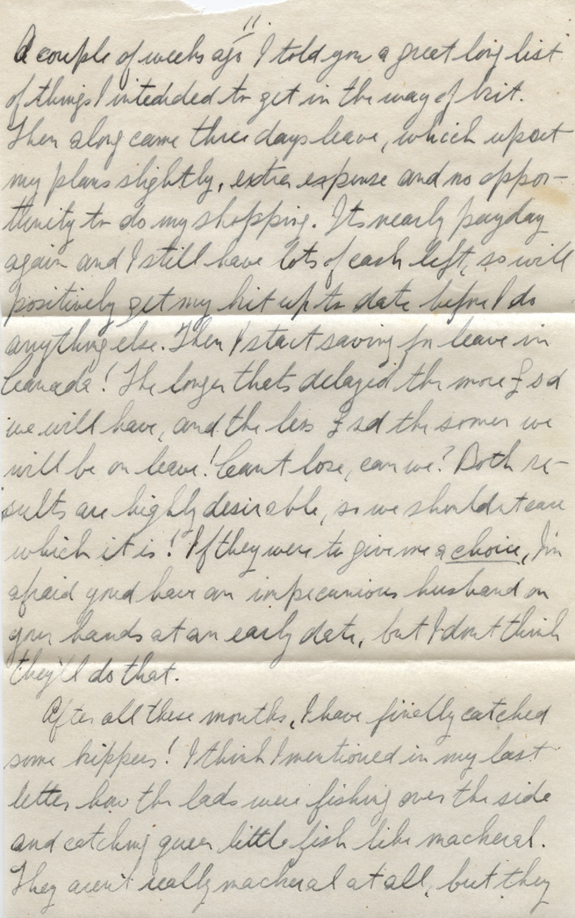 11.
A couple of weeks ago I told you a great long list
of things I intended to get in the way of kit.
Then along came three days leave, which upset
my plans slightly, extra expense and no oppor-
tunity to do my shopping. Its nearly payday
again and I still have lots of cash left, so will
positively get my kit up to date before I do
anything else. Then I start saving for leave in
Canada! The longer thats delayed the more £sd
we will have, and the less £sd the sooner we
will be on leave! Can't lose, can we? Both re-
sults are highly desirable, so we shouldn't care
which it is! If they were to give me a choice, I'm
afraid you'd have an impecunious husband on
your hands at an early date, but I don't think
they'll do that.
After all these months, I have finally catched
some kippers! I think I mentioned in my last
letter how the lads were fishing over the side
and catching queer little fish like macheral.
They aren't really macheral at all, but they